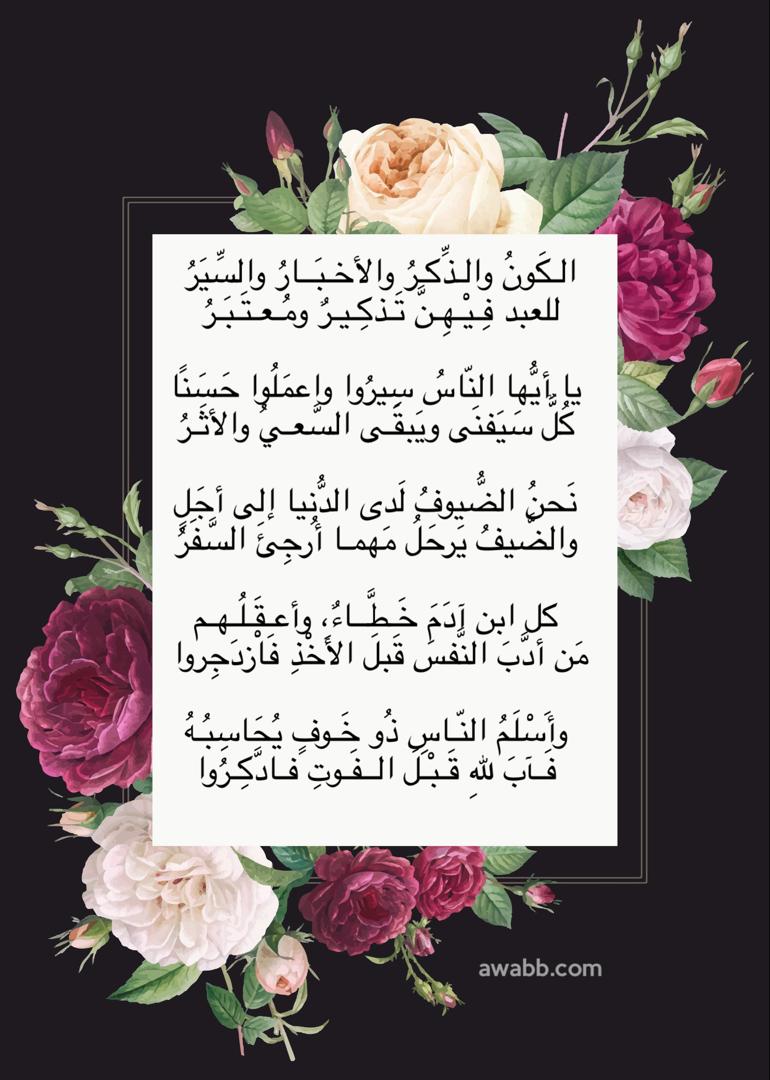 الكَونُ والذِّكرُ والأخبَارُ والسِّيَرُ
للعبد فِيْهِنَّ تَذكِيرٌ ومُعتَبَرُ
يا أيُّها النّاسُ سيرُوا واعمَلُوا حَسَنًا
كُلٌّ سَيَفنَى ويَبقَى السَّعيُ والأثَرُ
نَحنُ الضُّيوفُ لَدى الدُّنيا إلى أجَلٍ
والضَّيفُ يَرحَلُ مَهما أُرجِئَ السَّفَرُ
كل ابن آدَمَ خَطَّاءٌ، وأعقَلُهم
مَن أدَّبَ النَّفسَ قَبلَ الأَخْذِ فَاْزدَجِروا
وأَسْلَمُ النّاسِ ذُو خَوفٍ يُحَاسِبُهُ
فَآبَ للهِ قَبْلَ الفَوتِ فادَّكِرُوا
awabb.com